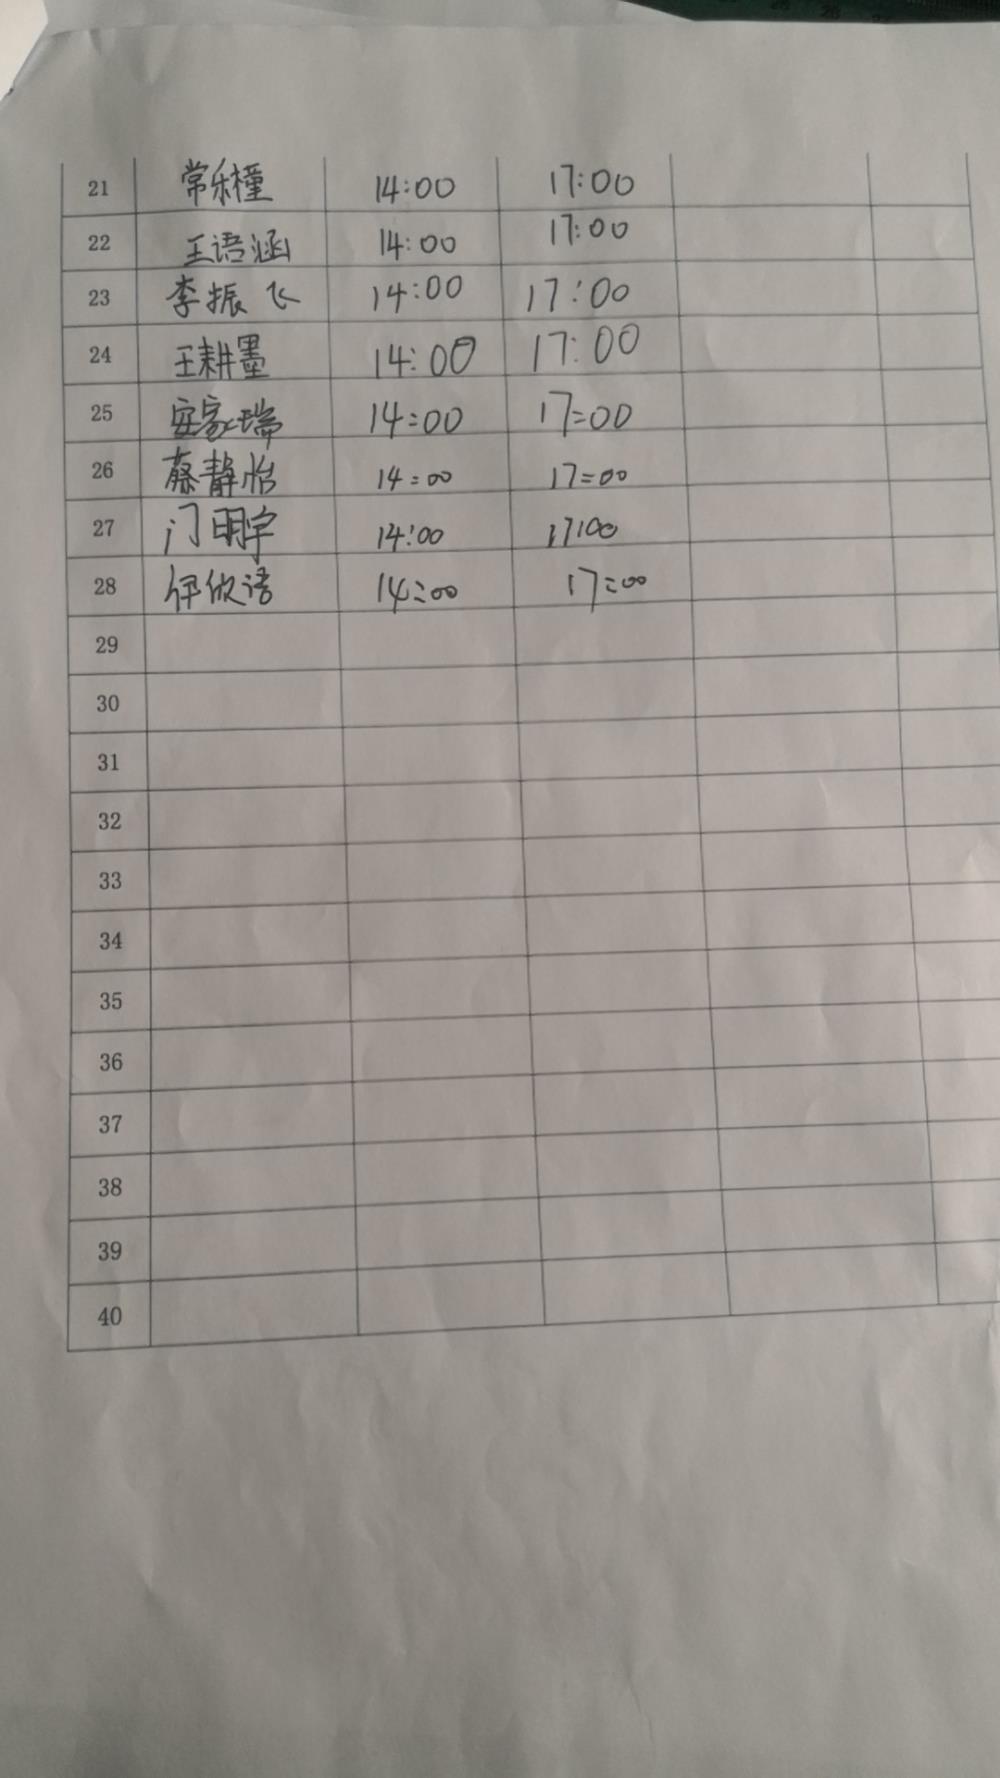 21 常乐橦 14:00 17:00
22 王语涵 14:00 17:00
23 李振飞 14:00 17:00
24 王耕墨 14:00 17:00
25 安家瑞 14:00 17:00
26 蔡静怡 14:00 17:00
27 门明宇 14:00 17:00
28 伊欣语 14:00 17:00
29
30
31
32
33
34
35
36
37
38
39
40